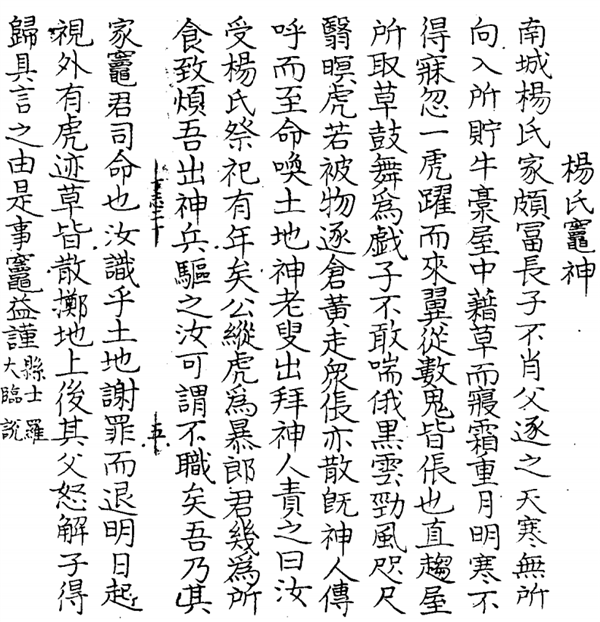 楊氏竈神
南城楊氏家頗冨長子不肖父逐之天寒無所
向入所貯牛藁屋中藉草而寢霜重月明寒不
得寐忽一虎躍而來翼從數鬼皆倀也直趨屋
所取草鼓舞爲戲子不敢喘俄黑雲勁風咫尺
翳暝虎若被物逐倉黃走衆倀亦散旣神人傳
呼而至命喚土地神老叟出拜神人責之曰汝
受楊氏祭祀有年矣公縱虎爲暴郎君幾爲所
食致煩吾出神兵驅之汝可謂不職矣吾乃其
家竈君司命也汝識乎土地謝罪而退明日起
視外有虎迹草皆散擲地上後其父怒解子得
歸具言之由是事竈益謹縣士羅
大臨說
五